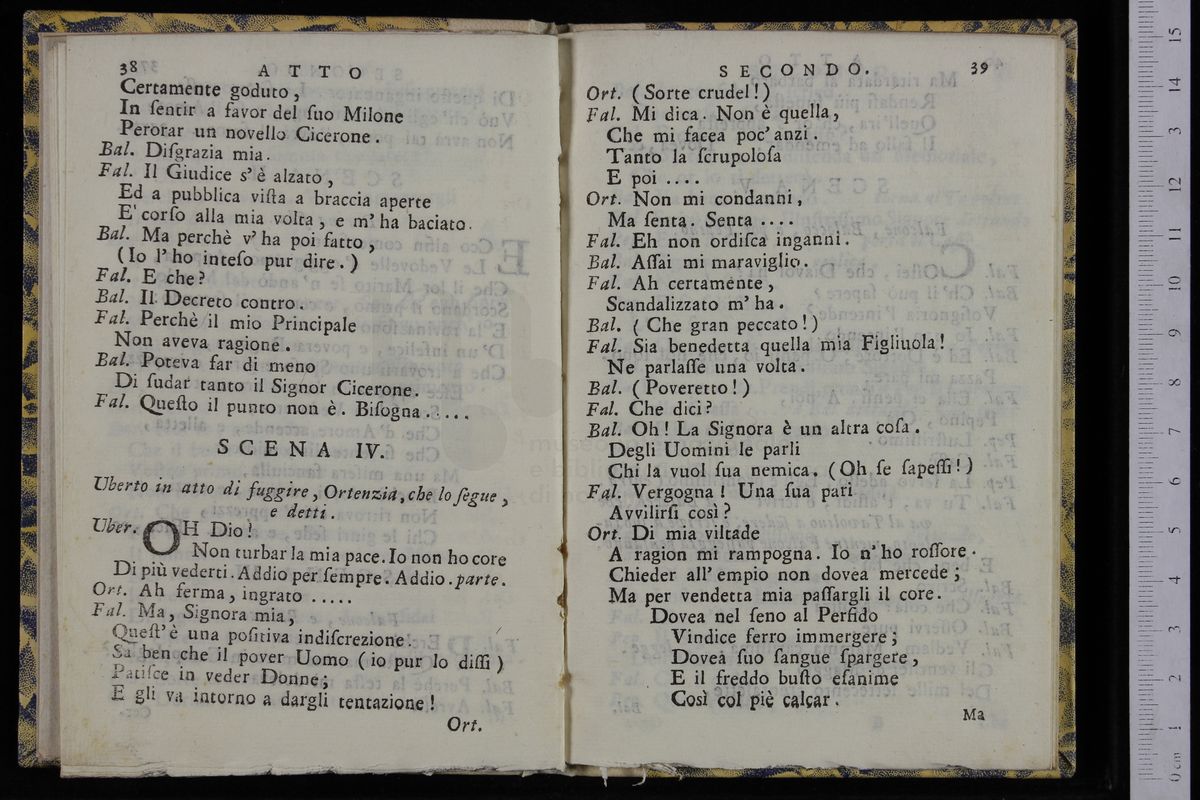 38
ATTO
Certamente goduto,
In ſentir a favor del ſuo Milone
Perorar un novello Cicerone.
Bal. Diſgrazia mia.
Fal. Il Giudice s'è alzato,
Ed a pubblica viſta a braccia aperte
E' corſo alla mia volta, e m'ha baciato.
Bal. Ma perchè v'ha poi fatto,
(Io l'ho inteſo pur dire.)
Fal. E che?
Bal. Il Decreto contro.
Fal. Perchè il mio Principale
Non aveva ragione.
Bal. Poteva far di meno
Di ſudar tanto il Signor Cicerone.
Fal. Queſto il punto non è. Biſogna.....
SCENA IV.
Uberto in atto di fuggire, Ortenzia, che lo ſegue,
e detti.
Uber. OH Dio!
Non turbar la mia pace. Io non ho core
Di più vederti. Addio per ſempre. Addio. parte.
Ort. Ah ferma, ingrato.....
Fal. Ma, Signora mia,
Queſt'è una poſitiva indiſcrezione.
Sa ben che il pover Uomo (io pur lo diſſi)
Patiſce in veder Donne;
E gli va intorno a dargli tentazione!
Ort.
SECONDO.
39
Ort. (Sorte crudel!)
Fal. Mi dica. Non è quella,
Che mi facea poc'anzi.
Tanto la ſcrupoloſa
E poi....
Ort. Non mi condanni,
Ma ſenta. Senta....
Fal. Eh non ordiſca inganni.
Bal. Aſſai mi maraviglio.
Fal. Ah certamente,
Scandalizzato m'ha.
Bal. (Che gran peccato!)
Fal. Sia benedetta quella mia Figliuola!
Ne parlaſſe una volta.
Bal. (Poveretto!)
Fal. Che dici?
Bal. Oh! La Signora è un altra coſa.
Degli Uomini le parli
Chi la vuol ſua nemica. (Oh ſe ſapeſſi!)
Fal. Vergogna! Una ſua pari
Avvilirſi così?
Ort. Di mia viltade
A ragion mi rampogna. Io n'ho roſſore.
Chieder all' empio non dovea mercede;
Ma per vendetta mia paſſargli il core.
Dovea nel ſeno al Perfido
Vindice ferro immergere;
Dovea ſuo ſangue ſpargere,
E il freddo buſto eſanime
Così col piè calcar.
Ma